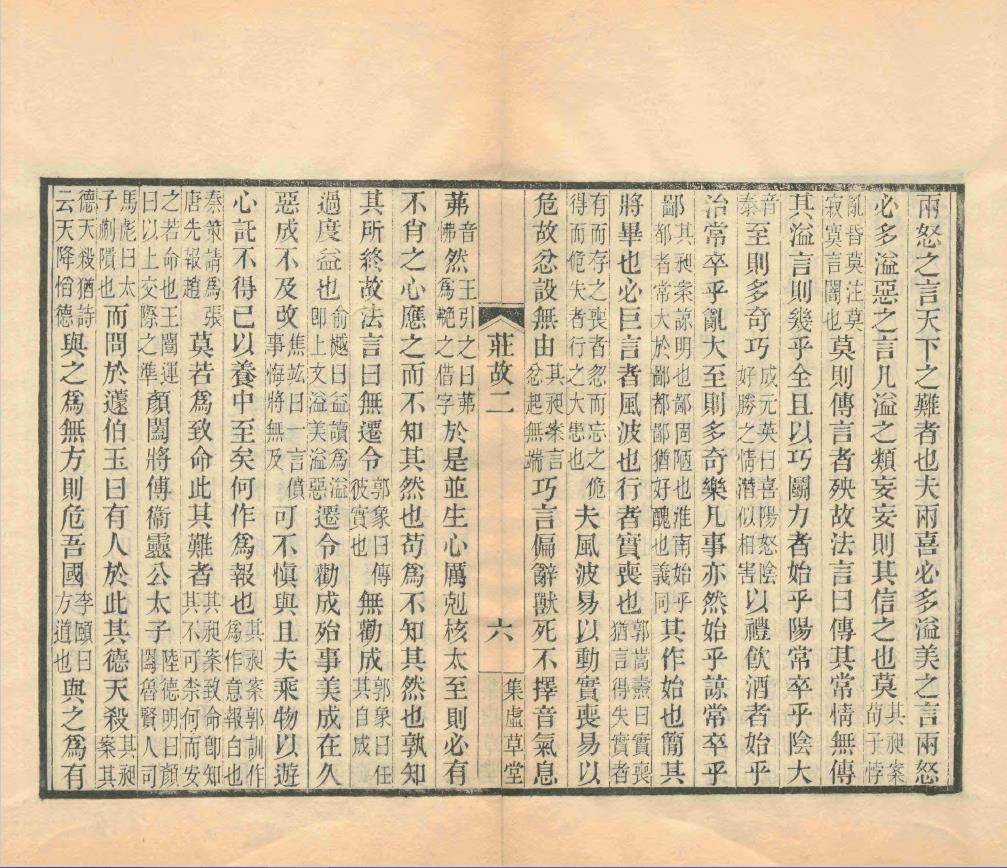 兩怒之言天下之難者也夫兩喜必多溢美之言兩怒
必多溢惡之言凡溢之類妄妄則其信之也莫其昶案荀子悖
亂昏莫注莫寂寞言闇也莫則傳言者殃故法言曰傳其常情無傳
其溢言則幾乎全且以巧鬭力者始乎陽常卒乎陰大
音泰至則多奇巧成元英曰喜陽怒陰好勝之情潛似相害以禮飲酒者始乎
治常卒乎亂大至則多奇樂凡事亦然始乎諒常卒乎
鄙其昶案諒明也鄙固陋也淮南始乎都者常大於鄙都鄙猶好醜也義同其作始也簡其
將畢也必巨言者風波也行者實喪也郭嵩燾曰實喪猶言得失實者
有而存之喪者忽而忘之得而佹失者行之大患也佹夫風波易以動實喪易以
危故忿設無由其昶案言忿起無端巧言偏辭獸死不擇音氣息
茀音佛然王引之曰茀爲艴之借字於是並生心厲剋核太至則必有
不肖之心應之而不知其然也苟爲不知其然也孰知
其所終故法言曰無遷令郭象曰傳彼實也無勸成郭象曰任其自成
過度益也俞樾曰益讀爲溢卽上文溢美溢惡遷令勸成殆事美成在久
惡成不及改焦竑曰一言僨事悔將無及可不慎與且夫乘物以遊
心託不得已以養中至矣何作爲報也其昶案郭訓作爲作意報白也
秦策請爲張唐先報趙莫若爲致命此其難者其昶案致命卽知其不可柰何而安
之若命也王闓運曰以上交際之準顏闔將傅衞靈公太子陸德明曰顏闔魯賢人司
馬彪曰太子蒯聵也而問於蘧伯玉曰有人於此其德天殺其昶案其
德天殺猶詩云天降慆德與之爲無方則危吾國李頤曰方道也與之爲有
莊故二
六
集虛草堂